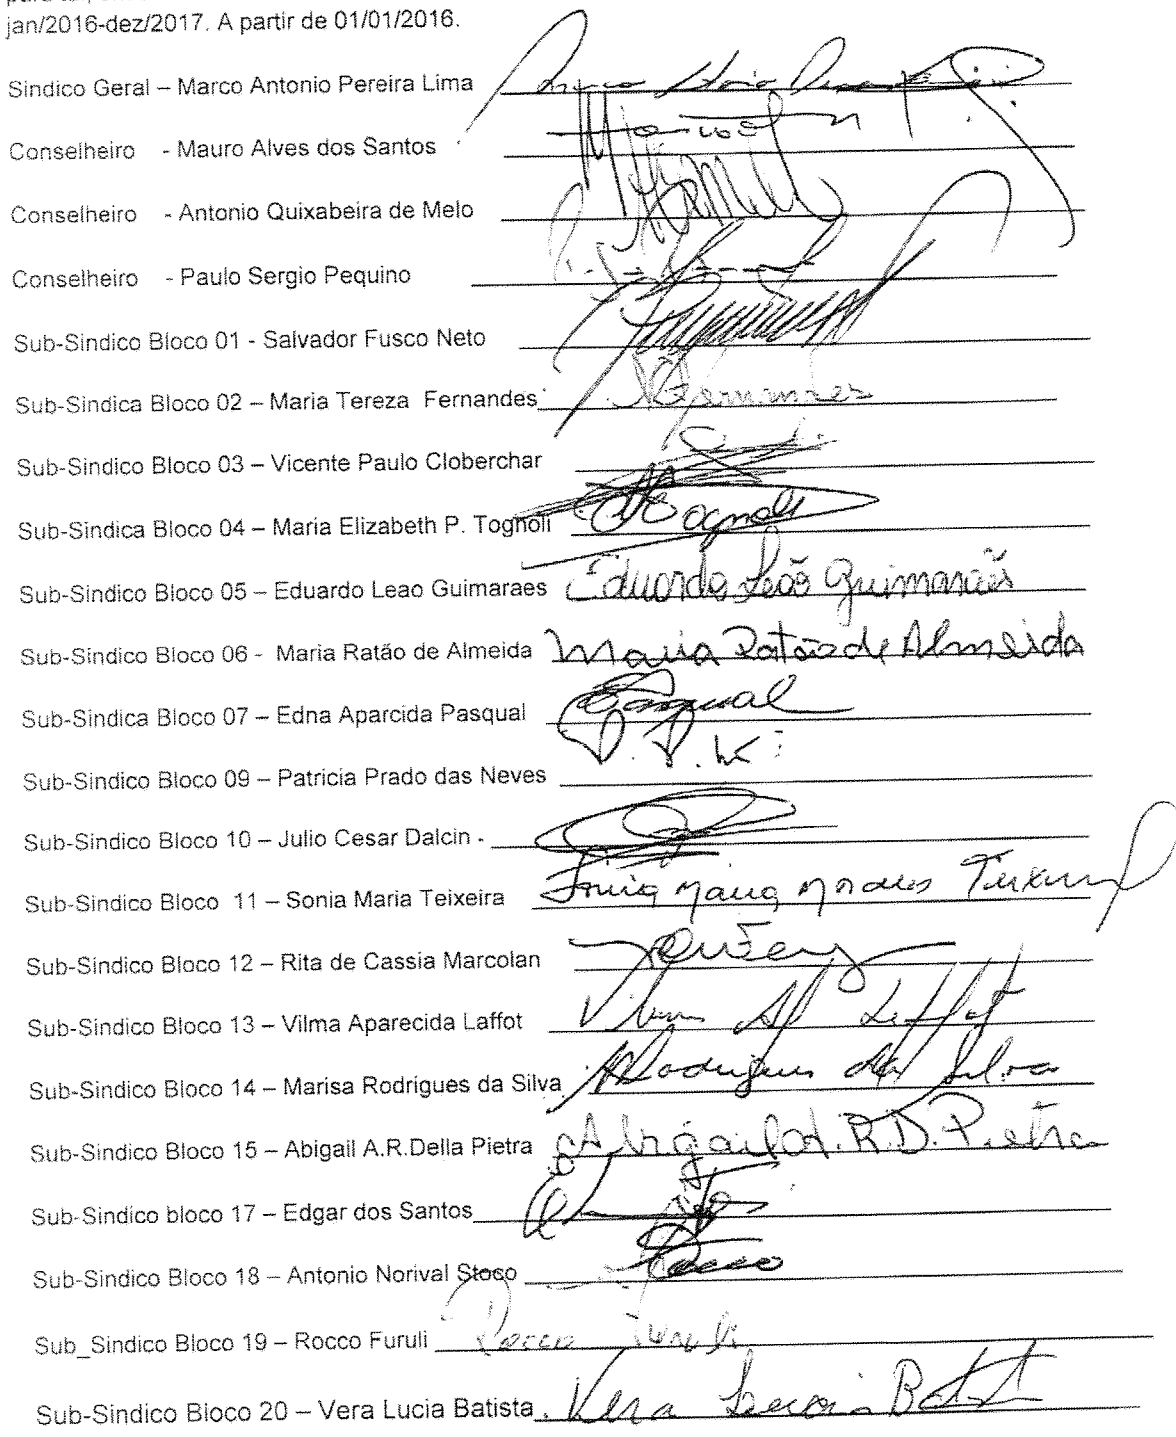 jan/2016-dez/2017. A partir de 01/01/2016.
Sindico Geral – Marco Antonio Pereira Lima
Conselheiro - Mauro Alves dos Santos
Conselheiro - Antonio Quixabeira de Melo
Conselheiro - Paulo Sergio Pequino
Sub-Sindico Bloco 01 - Salvador Fusco Neto
Sub-Sindica Bloco 02 – Maria Tereza Fernandes MFernandes
Sub-Sindico Bloco 03 – Vicente Paulo Cloberchar
Sub-Sindica Bloco 04 – Maria Elizabeth P. Tognoli Tognoli
Sub-Sindico Bloco 05 – Eduardo Leao Guimaraes Eduardo Leão Guimarães
Sub-Sindico Bloco 06 - Maria Ratão de Almeida Maria Ratão de Almeida
Sub-Sindica Bloco 07 – Edna Aparcida Pasqual Pasqual
Sub-Sindico Bloco 09 – Patricia Prado das Neves
Sub-Sindico Bloco 10 – Julio Cesar Dalcin
Sub-Sindico Bloco 11 – Sonia Maria Teixeira Sonia Maria Moraes Teixeira
Sub-Sindico Bloco 12 – Rita de Cassia Marcolan
Sub-Sindico Bloco 13 – Vilma Aparecida Laffot Vilma Ap Laffot
Sub-Sindico Bloco 14 – Marisa Rodrigues da Silva MRodrigues da Silva
Sub-Sindico Bloco 15 – Abigail A.R.Della Pietra Abigail A.R.D.Pietra
Sub-Sindico bloco 17 – Edgar dos Santos
Sub-Sindico Bloco 18 – Antonio Norival Stoco
Sub_Sindico Bloco 19 – Rocco Furuli Rocco Furuli
Sub-Sindico Bloco 20 – Vera Lucia Batista Vera Lucia Batista